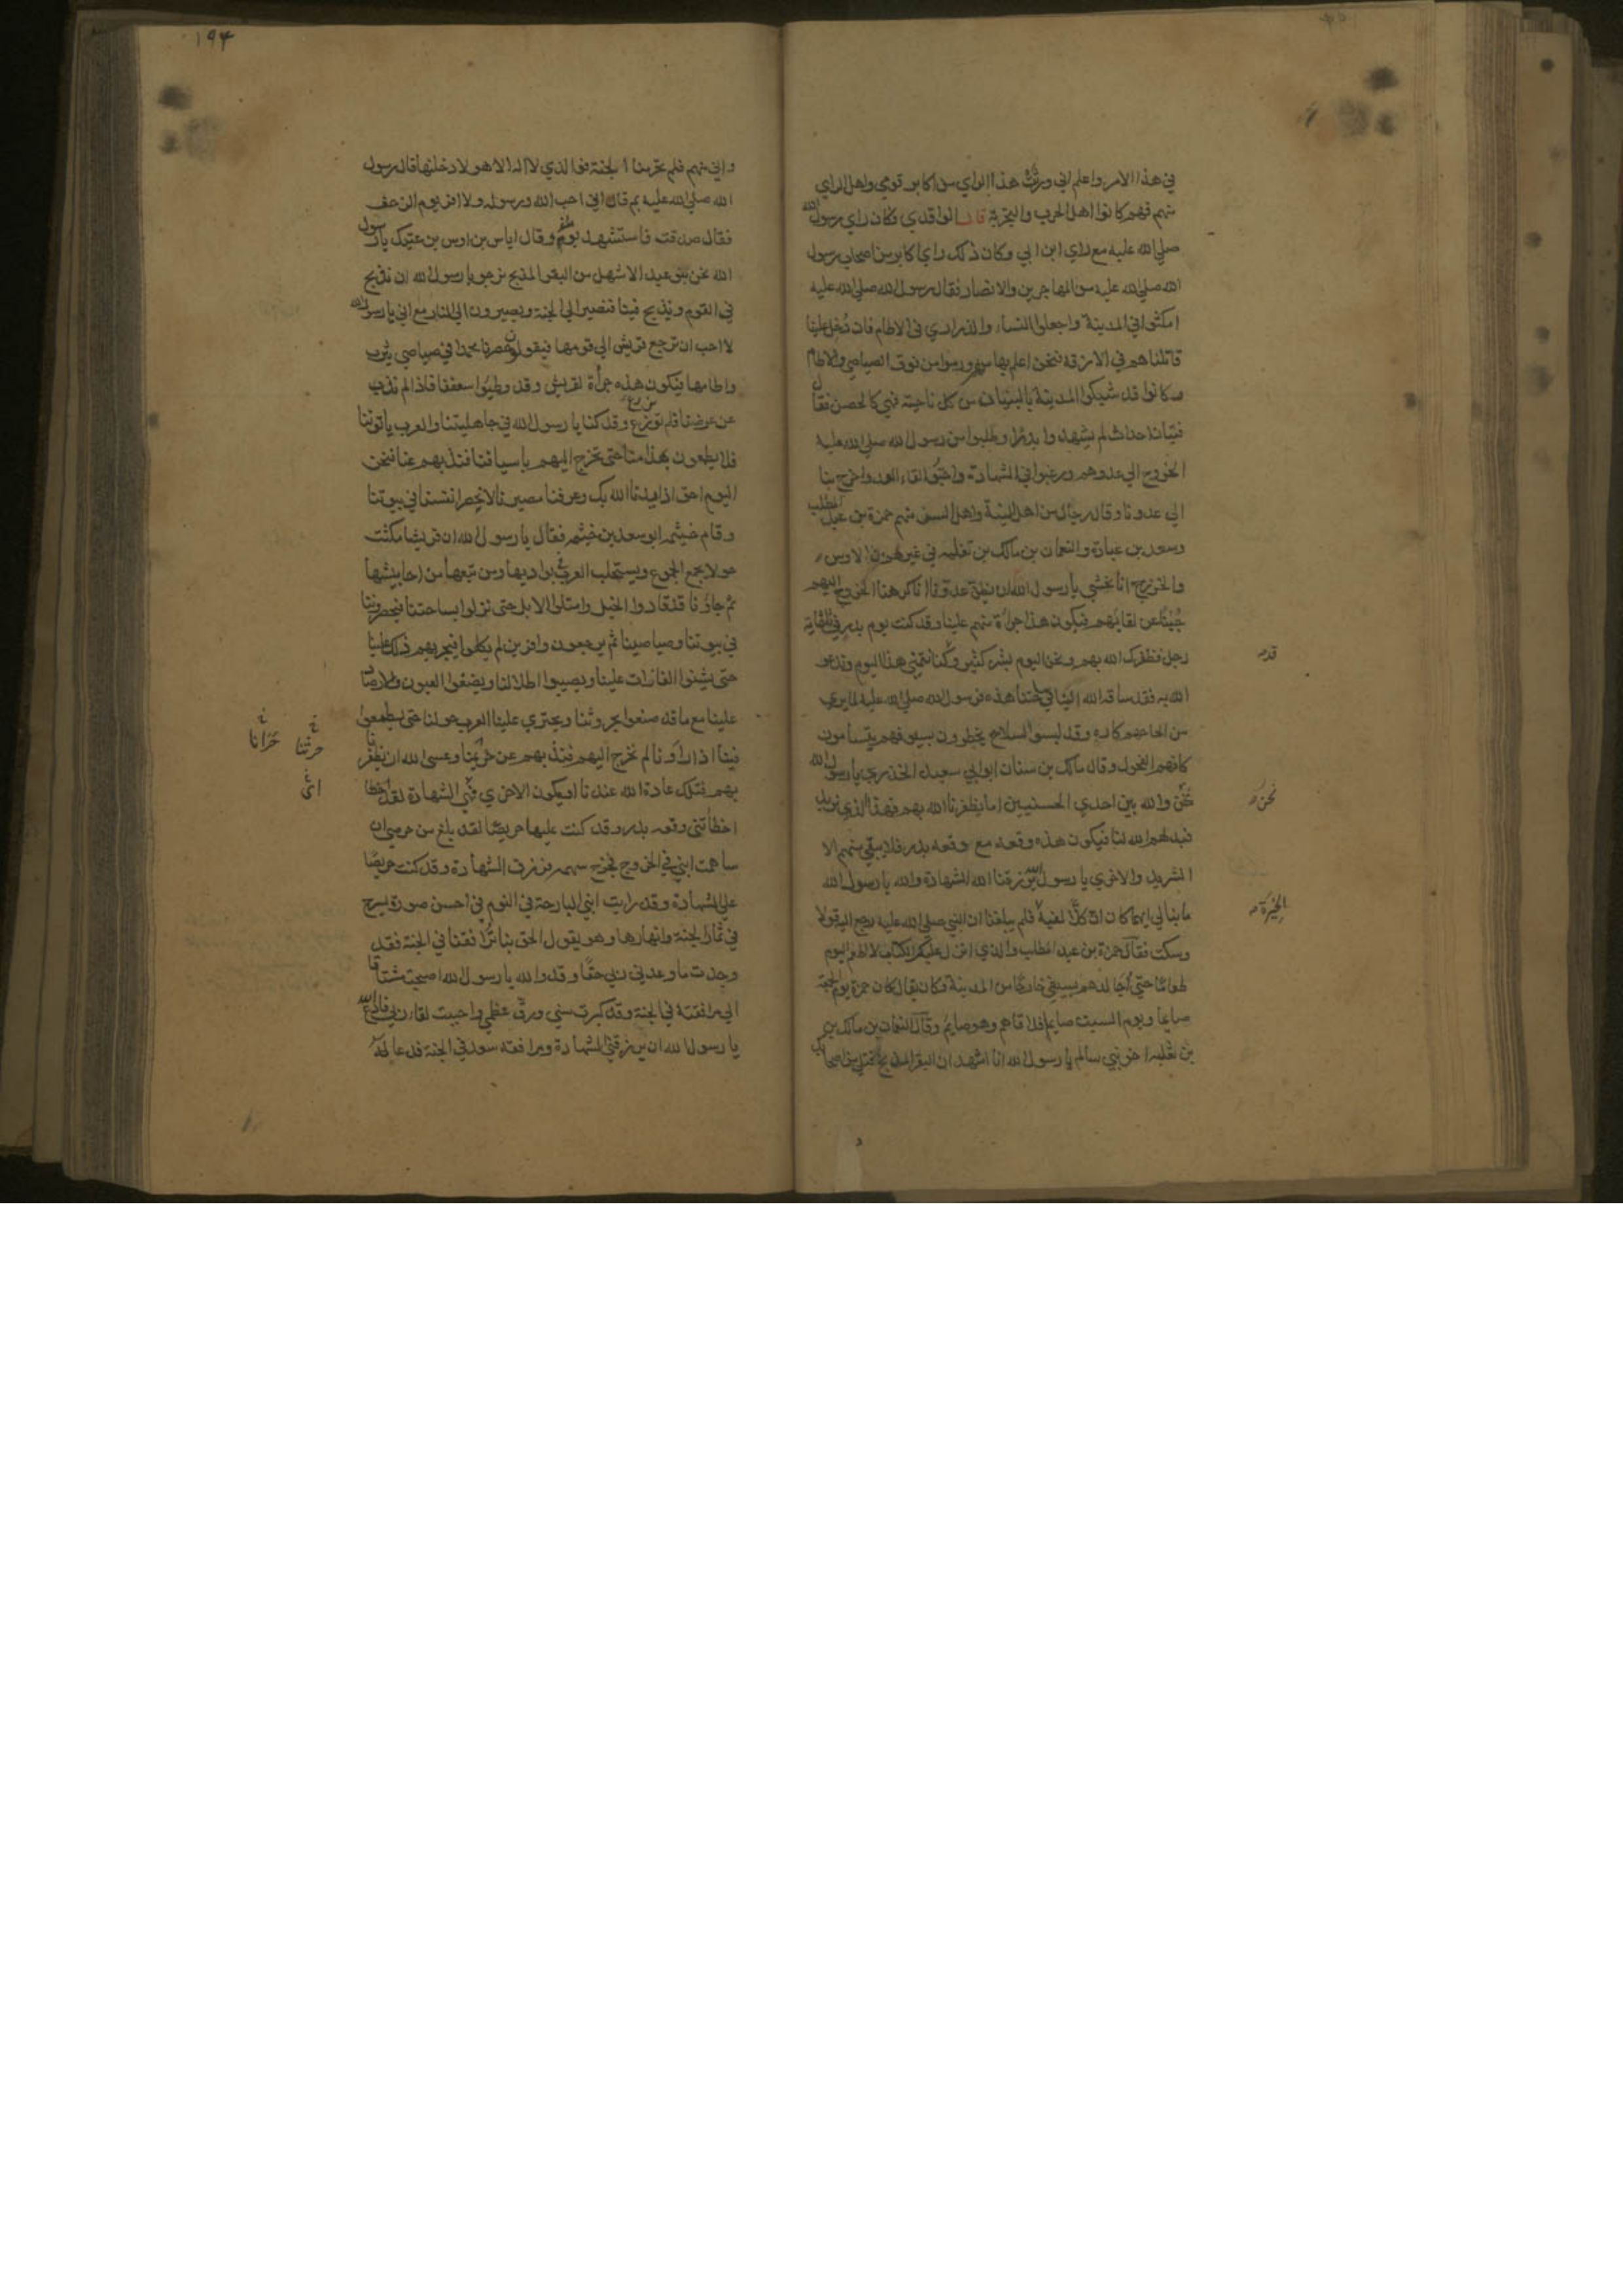 في هذا الامر واعلم اني ورثت هذا الراي من اكابر قومي واهل الراي
منهم فهم كانوا اهل الحرب والتجربة قال الواقدي وكان راي رسول الله
صلي الله عليه مع راي ابن ابي وكان ذلك راي اكابر من اصحاب رسول
الله صلي الله عليه من المهاجرين والانصار فقال رسول الله صلي الله عليه
امكثوا في المدينة واجعلوا النساء والذراري في الاطام فان دُخل علينا
قاتلناهم في الازقة فنحن اعلم بها منهم ورموا من فوق الصياصي والاطام
وكانوا قد شبكوا المدينة بالبنيان من كل ناحية فهي كالحصن فقال
فتيان احداث لم يشهدوا بدرًا وطلبوا من رسول الله صلي الله عليه
الخروج الي عدوهم ورغبوا في الشهادة واحبّوا لقاء العدو اخرج بنا
الي عدونا وقال رجال من اهل النية واهل السن منهم حمزة بن عبد المطلب
وسعد بن عبادة والنعمان بن مالك بن ثعلبه في غيرهم من الاوس
والخزرج انا نخشي يا رسول الله ان يظن عدونا انا كرهنا الخروج اليهم
جُبْنًا عن لقائهم فيكون هذا جراة منهم علينا وقد كنت يوم بدر في ثلثماية
رجل فظفرك الله بهم ونحن اليوم بشر كثير وكنا نتمني هذا اليوم وندعو
الله به فقد ساقه الله الينا في ساحتنا هذه ورسول الله صلي الله عليه لما يري
من الحاحهم كاره وقد لبسوا السلاح يخطرون بسيوفهم يتسامون
كانهم الفحول وقال مالك بن سنان ابو ابي سعيد الخدري يا رسول الله
نحن والله بين احدي الحسنيين اما يظفرنا الله بهم فهذا الذي نريد
فيذلهم الله لنا فيكون هذه وقعه مع وقعه بدر فلا يبقي منهم الا
الشريد والاخري يا رسول الله يرزقنا الله الشهادة والله يا رسول الله
ما ابالي ايهما كان ان كلًّا لفيه فلم يبلغنا ان النبي صلي الله عليه رجع اليه قولا
وسكت فقال حمزة بن عبد المطلب والذي انزل عليك الكتاب لا اطعم اليوم
طعامًا حتي اجالدهم بسيفي خارجًا من المدينة وكان يقال كان حمزة يوم الجمعة
صايما ويوم السبت صايما فلاقاهم وهو صايم وقال النعمان بن مالك
بن ثعلبه اخو بني سالم يا رسول الله انا اشهد ان البقر المذبح قتلي من اصحابك
قد
نحن
الخيرة
١٩٤
واني منهم فلم تحرمنا الجنة فوالذي لا اله الا هو لادخلنها قال رسول
الله صلي الله عليه بم قال اني احب الله ورسوله ولا افر يوم الزحف
فقال صدقت فاستشهد يومئذ وقال اياس بن اوس بن عتيك يا رسول
الله نحن بنو عبد الاشهل من البقر المذبح نرجو يا رسول الله ان نذبح
في القوم ويذبح فينا فنصير الي الجنة ويصيرون الي النار مع اني يا رسول الله
لا احب ان ترجع قريش الي قومها فيقولون حصرنا محمدا في صياصي يثرب
واطامها فيكون هذه جرأة لقريش وقد وطئوا سعفنا فاذا لم نذب
عن عرضنا فلم نزرع وقد كنا يا رسول الله في جاهليتنا والعرب ياتوننا
فلا يطمعون بهذا منا حتي نخرج اليهم باسيافنا فنذبهم عنا فنحن
اليوم احق اذ ايدنا الله بك وعرفنا مصيرنا لا نحصر انفسنا في بيوتنا
وقام خيثمه ابو سعد بن خيثمه فقال يا رسول الله ان قريشا مكثت
حولا تجمع الجموع ويستجلب العرب في بواديها ومن تبعها من احابيشها
ثم جاؤنا قد قادوا الخيل وامتطوا الابل حتي نزلوا بساحتنا فيحصروننا
في بيوتنا وصياصينا ثم يرجعون وافرين لم يكلموا فيجريهم ذلك علينا
حتي يشنوا الغارات علينا ويصيبوا اطلالنا ويضعوا العيون والارصاد
علينا مع ما قد صنعوا بحروثنا ويجتري علينا العرب حولنا حتي يطمعوا
فينا اذا راونا لم نخرج اليهم فنذبهم عن حريمنا وعسي الله ان يظفرنا
بهم فتلك عادة الله عندنا او يكون الاخري فهي الشهادة لقد
اخطأتني وقعه بدر وقد كنت عليها حريصًا لقد بلغ من حرصي ان
ساهمت ابني في الخروج فخرج سهمه فرزق الشهادة وقد كنت حريصًا
علي الشهادة وقد رايت ابني البارحة في النوم في احسن صورة يسرح
في ثمار الجنة وانهارها وهو يقول الحق بنا ترافقنا في الجنة فقد
وجدت ما وعدني ربي حقًا وقد والله يا رسول الله اصبحت مشتاقا
الي مرافقته في الجنة وقد كبرت سني ورق عظمي واحببت لقاء ربي فادع الله
يا رسول الله ان يرزقني الشهادة ومرافقه سعد في الجنة فدعا له
حرثنا